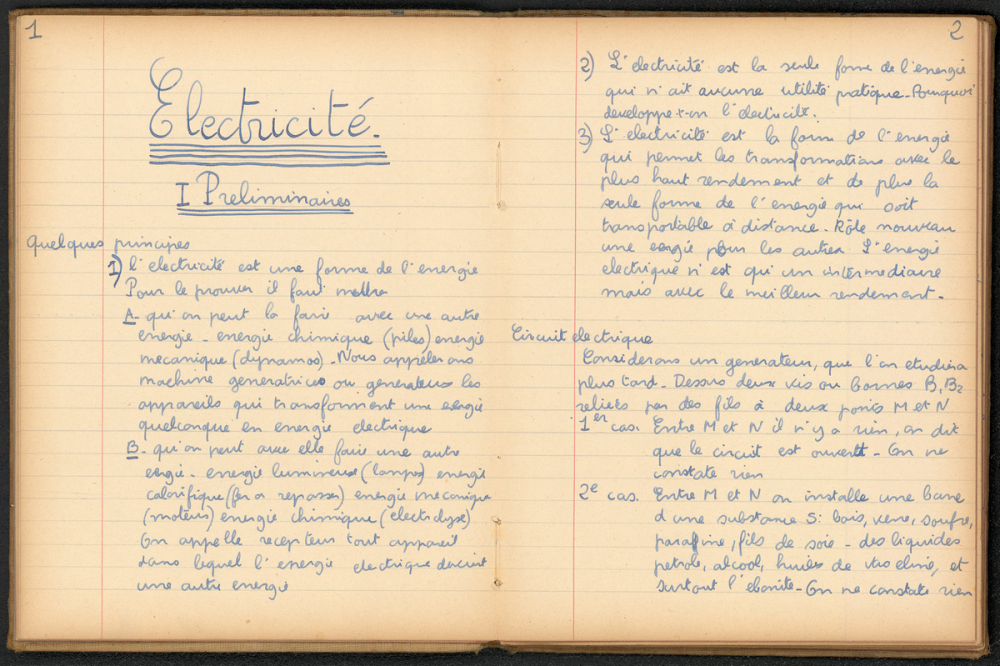 1
Electricité.
I Preliminaires
Quelques principes
1) l'electricité est une forme de l'energie
Pour le prouver il faut mettre
A- qu'on peut la faire avec une autre
energie - energie chimique (piles) energie
mecanique (dynamos) - Nous appélerons
machine generatrices ou generateurs les
appareils qui transforment une energie
quelconque en energie electrique
B- qu'on peut avec elle faire une autre
engie - energie lumineuse (lampes) energie
calorifique (fer a repasser) energie mecanique
(moteurs) energie chimique (electrolyse)
On appelle recepteurs tout appareil
dans lequel l'energie electrique devient
une autre energie
2
2) L'electricité est la seule forme de l'energie
qui n'ait aucune utilité pratique - Pourquoi
developpe-t-on l'electricité.
3) L'electricité est la forme de l'energie
qui permet les transformations avec le
plus haut rendement et de plus la
seule forme de l'energie qui soit
transportable à distance - Rôle nouveau
une energie pour les autres L'energie
electrique n'est qu'un intermediaire
mais avec le meilleur rendement -
Circuit electrique
Considerons un generateur, que l'on etudiera
plus tard - Dessus deux vis ou bornes B1 B2
reliées par des fils à deux points M et N
1er cas. Entre M et N il n'y a rien, on dit
que le circuit est ouvert - On ne
constate rien
2e cas. Entre M et N on installe une barre
d'une substance S: bois, verre, soufre,
parafine, fils de soie - des liquides
petrole, alcool, huiles de vaseline, et
surtout l'ebonite - On ne constate rien